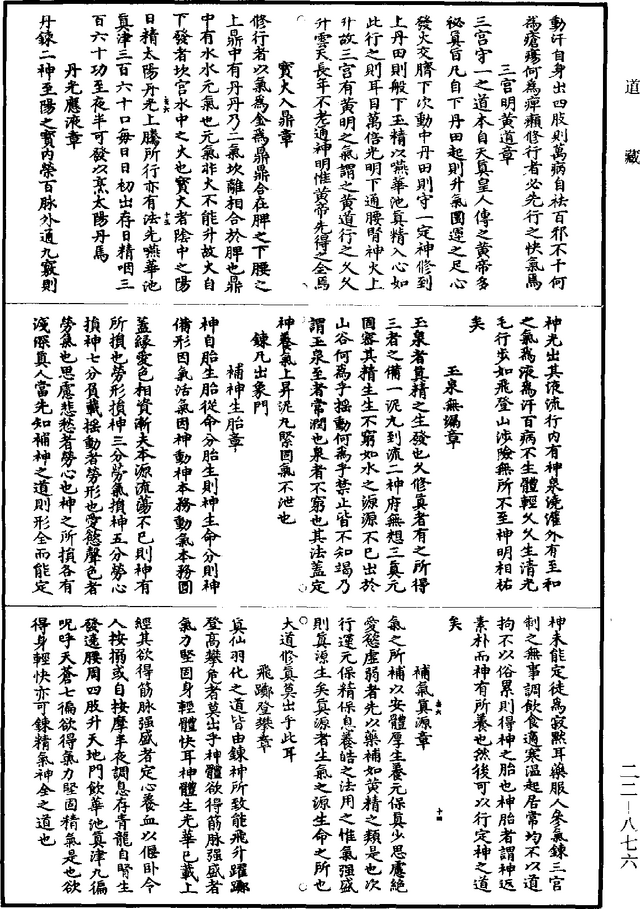 道藏
動汗自身出四肢則萬病自祛百邪不干何
為瘡瘍何為癉癩修行者必先行之快氣焉
三宮明黃道章
三宮守一之道本自天真皇人傳之黃帝多
祕真旨凡自下丹田起則升氣圓運之足心
發火交臍下次動中丹田則守一定神修到
上丹田則般下玉精以嚥華池真精入心如
此行之則耳目萬倍光明下通腰腎神火上
升故三宮有黃明之氣謂之黃道行之久久
升雲天長年不老通神明惟黃帝先得之全焉
寶火入鼎章
修行者以氣為金為鼎鼎合在脾之下腰之
上鼎中有丹丹乃二氣坎離相合於脾也鼎
中有水水元氣也元氣非火不能升故火自
下發者坎宮水中之火也寶火者陰中之陽
日精太陽丹光上騰所行亦有法先嚥華池
真津三百六十口每日日初出存日精咽三
百六十功至夜半可發以烹太陽丹焉
丹光應液章
丹鍊二神至陽之寶內榮百脉外通九竅則
神光出其液流行內有神泉澆灌外有至和
之氣為液為汗百病不生體輕久久生清光
毛行步如飛登山涉險無所不至神明相祐
矣
玉泉無漏章
玉泉者真精之生發也久修真者有之所得
三者之備一泥九到流二神府無想三真元
固密其精生生不窮如水之源源不已出於
山谷何為乎搖動何為乎禁止皆不知竭乃
謂玉泉至者常潤也泉者不窮也其法蓋定
神養氣上昇泥九緊固氣不泄也
鍊凡出象門
補神生胎章
神自胎生胎從命分胎生則神生命分則神
備形因氣活氣因神動神本務動氣本務圓
蓋緣愛色相資漸夫本源流蕩不已則神有
所損也勞形損神三分勞氣損神五分勞心
損神七分負載搖動者勞形也愛慾聲色者
勞氣也思慮悲愁者勞心也神之所損各有
淺深真人當先知補神之道則形全而能定
神未能定徒為寂默耳藥服人參氣鍊三宮
制之無事調飲食適寒溫起居常均不以道
拘不以俗累則得神之胎也神胎者謂神返
素朴而神有所養也然後可以行定神之道
矣
補氣真源章
氣之所補以安體厚生養元保真少思慮絕
愛慾虛弱者先以藥補如黃精之類是也次
行運元保精保息養皓之法用之惟氣強盛
則真源生矣真源者生氣之源生命之所也
大道修真莫出乎此耳
飛躑登攀章
真仙羽化之道皆由鍊神所致能飛升躍躑
登高攀危者莫出乎神體欲得筋脉強盛者
氣力堅固身輕體快耳神體生光華已載上
經其欲得筋脉强盛者定心養血以偃卧令
人按搦或自按摩半夜調息存青龍自腎生
發遶腰周四肢升天地門飲華池真津九徧
呪呼天蒼七徧欲得氣力堅固精氣是也欲
得身輕快亦可鍊精氣神全之道也
二二－八七六